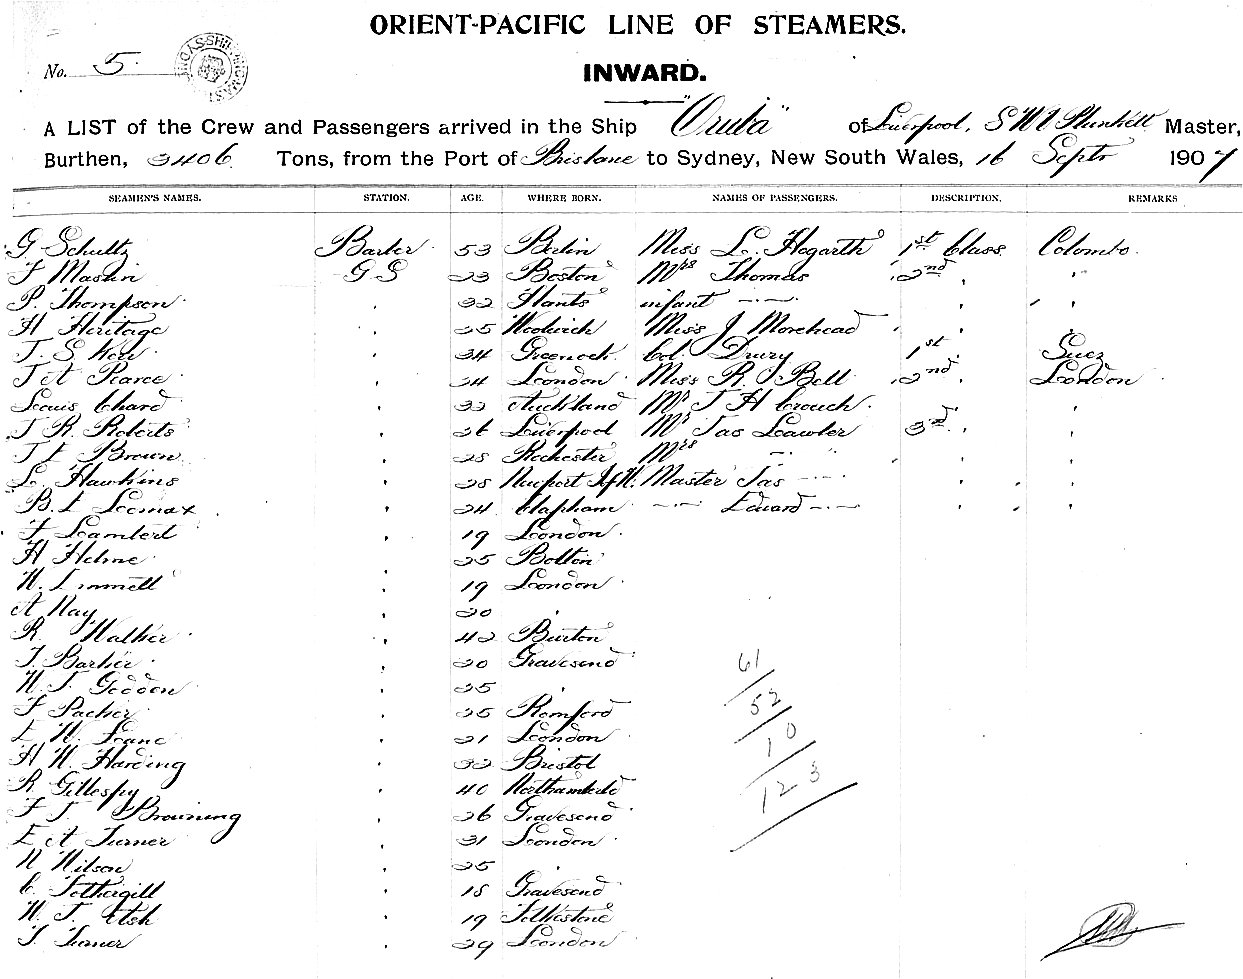 ORIENT-PACIFIC LINE OF STEAMERS.
No. 5
INWARD.
A LIST of the Crew and Passengers arrived in the Ship "Oruba" of Liverpool, Plunkett Master,
Burthen, 3406 Tons, from the Port of Brisbane to Sydney, New South Wales, 16 Septr 1907
SEAMEN'S NAMES. STATION. AGE. WHERE BORN. NAMES OF PASSENGERS. DESCRIPTION. REMARKS
G. Schultz Barber 53 Berlin Miss L. Hogarth 1st Class Colombo
F Mashin G S 23 Boston Mrs Thomas 2nd "
P. Thompson " 32 Hants infant " "
H Heritage " 25 Woolwich Miss J Morehead " "
J. S. Kerr " 34 Greenock Col. Drury 1st " Suez
J A Pearce " 24 London Miss R. J Bell 2nd " London
Louis Chard " 33 Auckland Mr J H Crouch " "
J. R. Roberts " 26 Liverpool Mr Jas Lawler 3rd " "
Brown " 28 Rochester Mrs " " "
L. Hawkins " 28 Newport Master Jas " "
B. L Lomax " 24 Clapham " Edward " "
F Lambert " 19 London
H Helme " 25 Bolton
W. Emmett " 19 London
A May " 20 "
R. Walker " 42 Burton
J. Barker " 20 Gravesend
W. J. Goddon " 25 "
F Packer " 25 Romford
E. W. Lane " 21 London
H W. Harding " 32 Bristol
R Gillespy " 40 Northumbld
F J Browning " 26 Gravesend
E A Turner " 31 London
W Wilson " 25 "
C. Fothergill " 18 Gravesend
W. J. " 19 Folkestone
J. Turner " 29 London
61
52
10
123